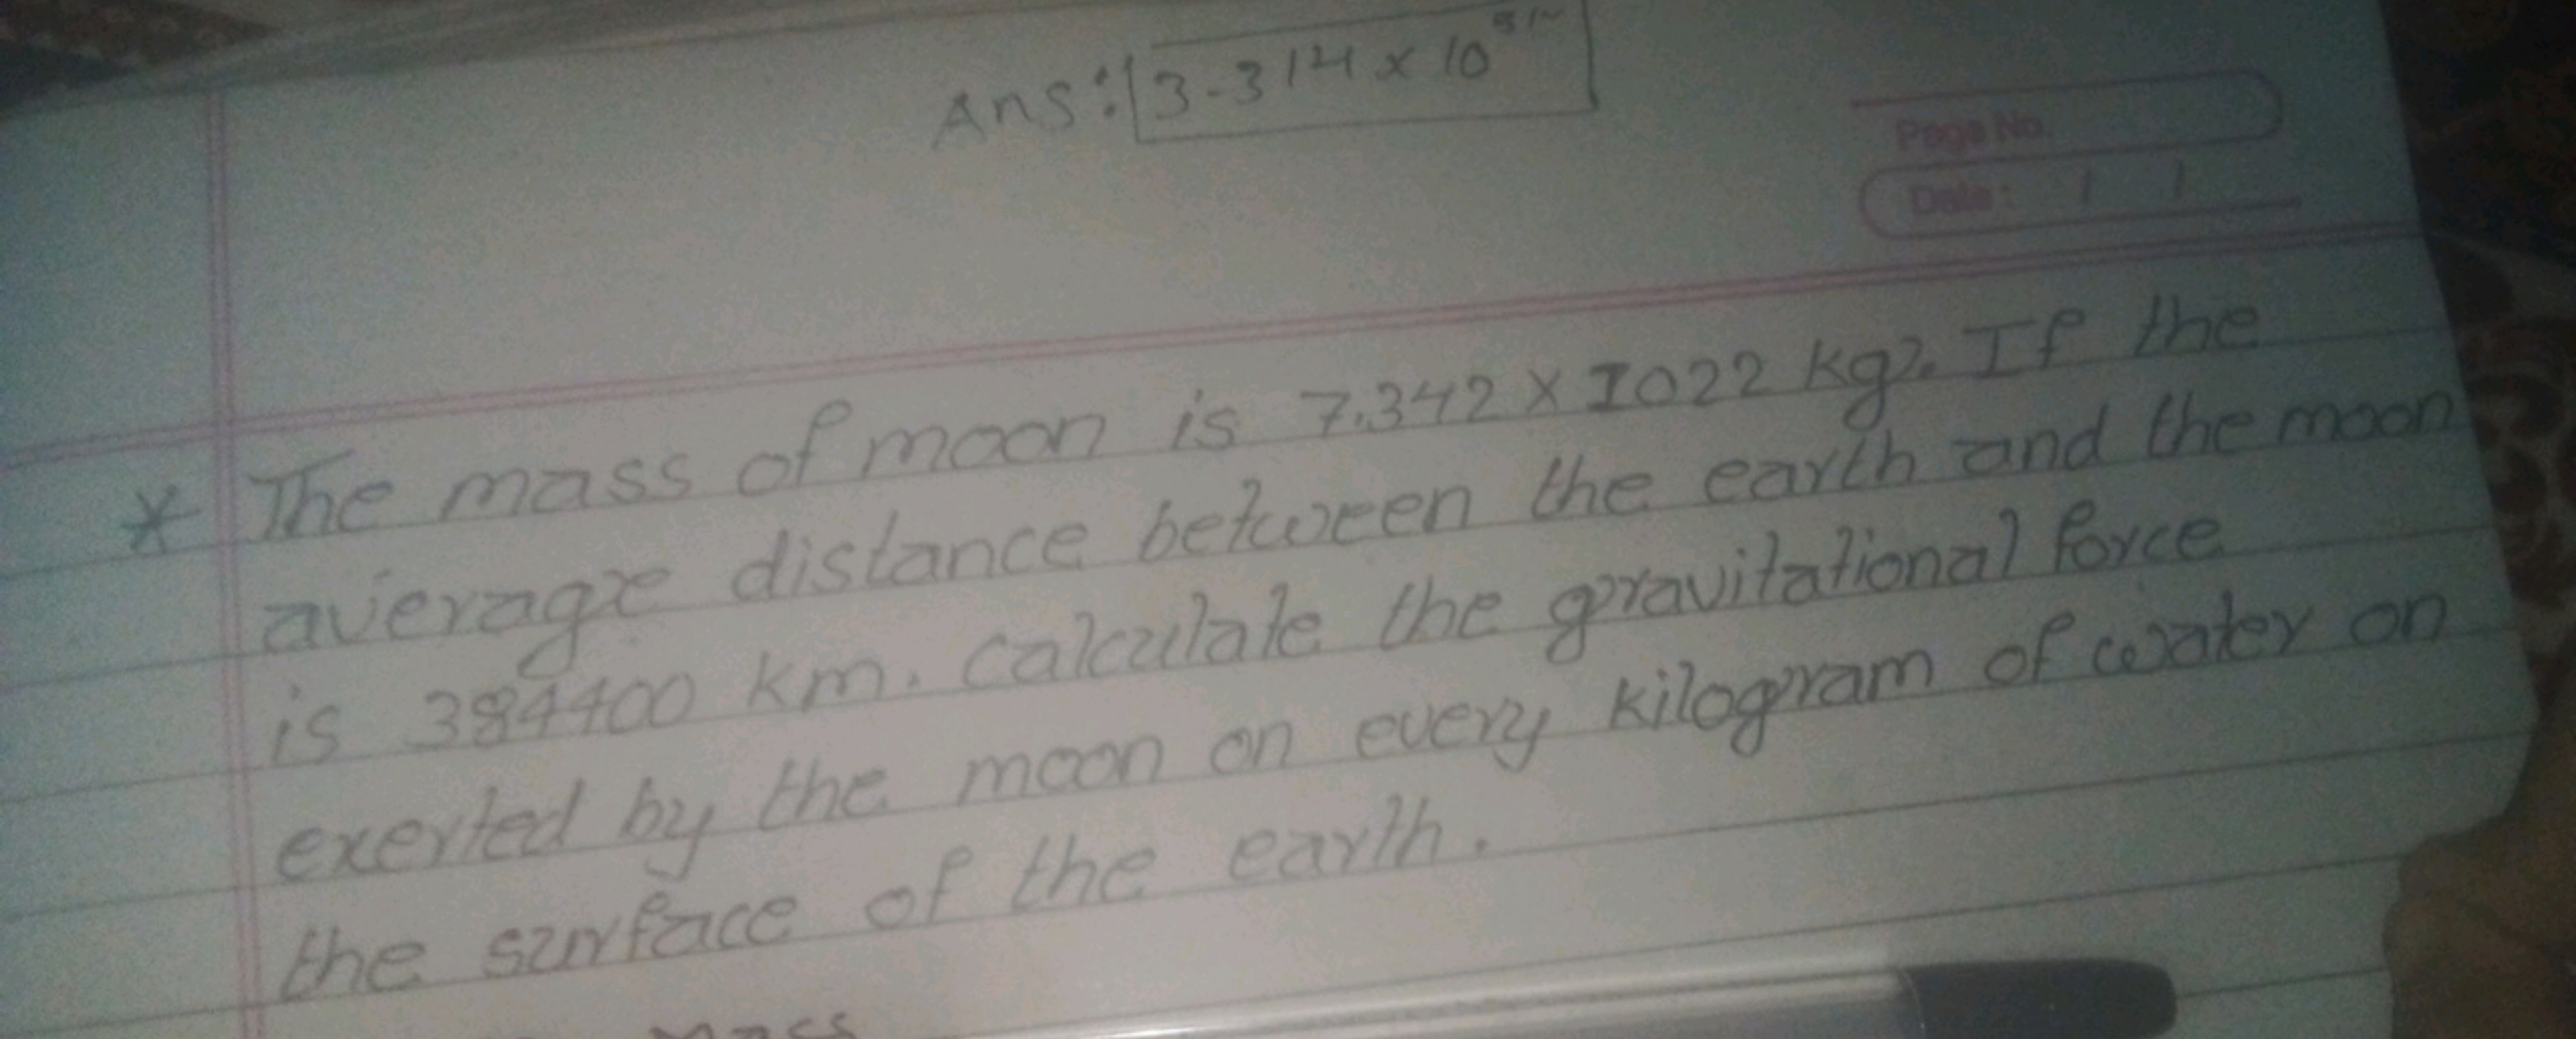 Ans: 3.314 x 10
Page No.
Date: / /
* The mass of moon is 7.342 X 1022 kg. If the
average distance between the earth and the moon
is 384400 km. calculate the gravitational force
exerted by the moon on every kilogram of water on
the surface of the earth.